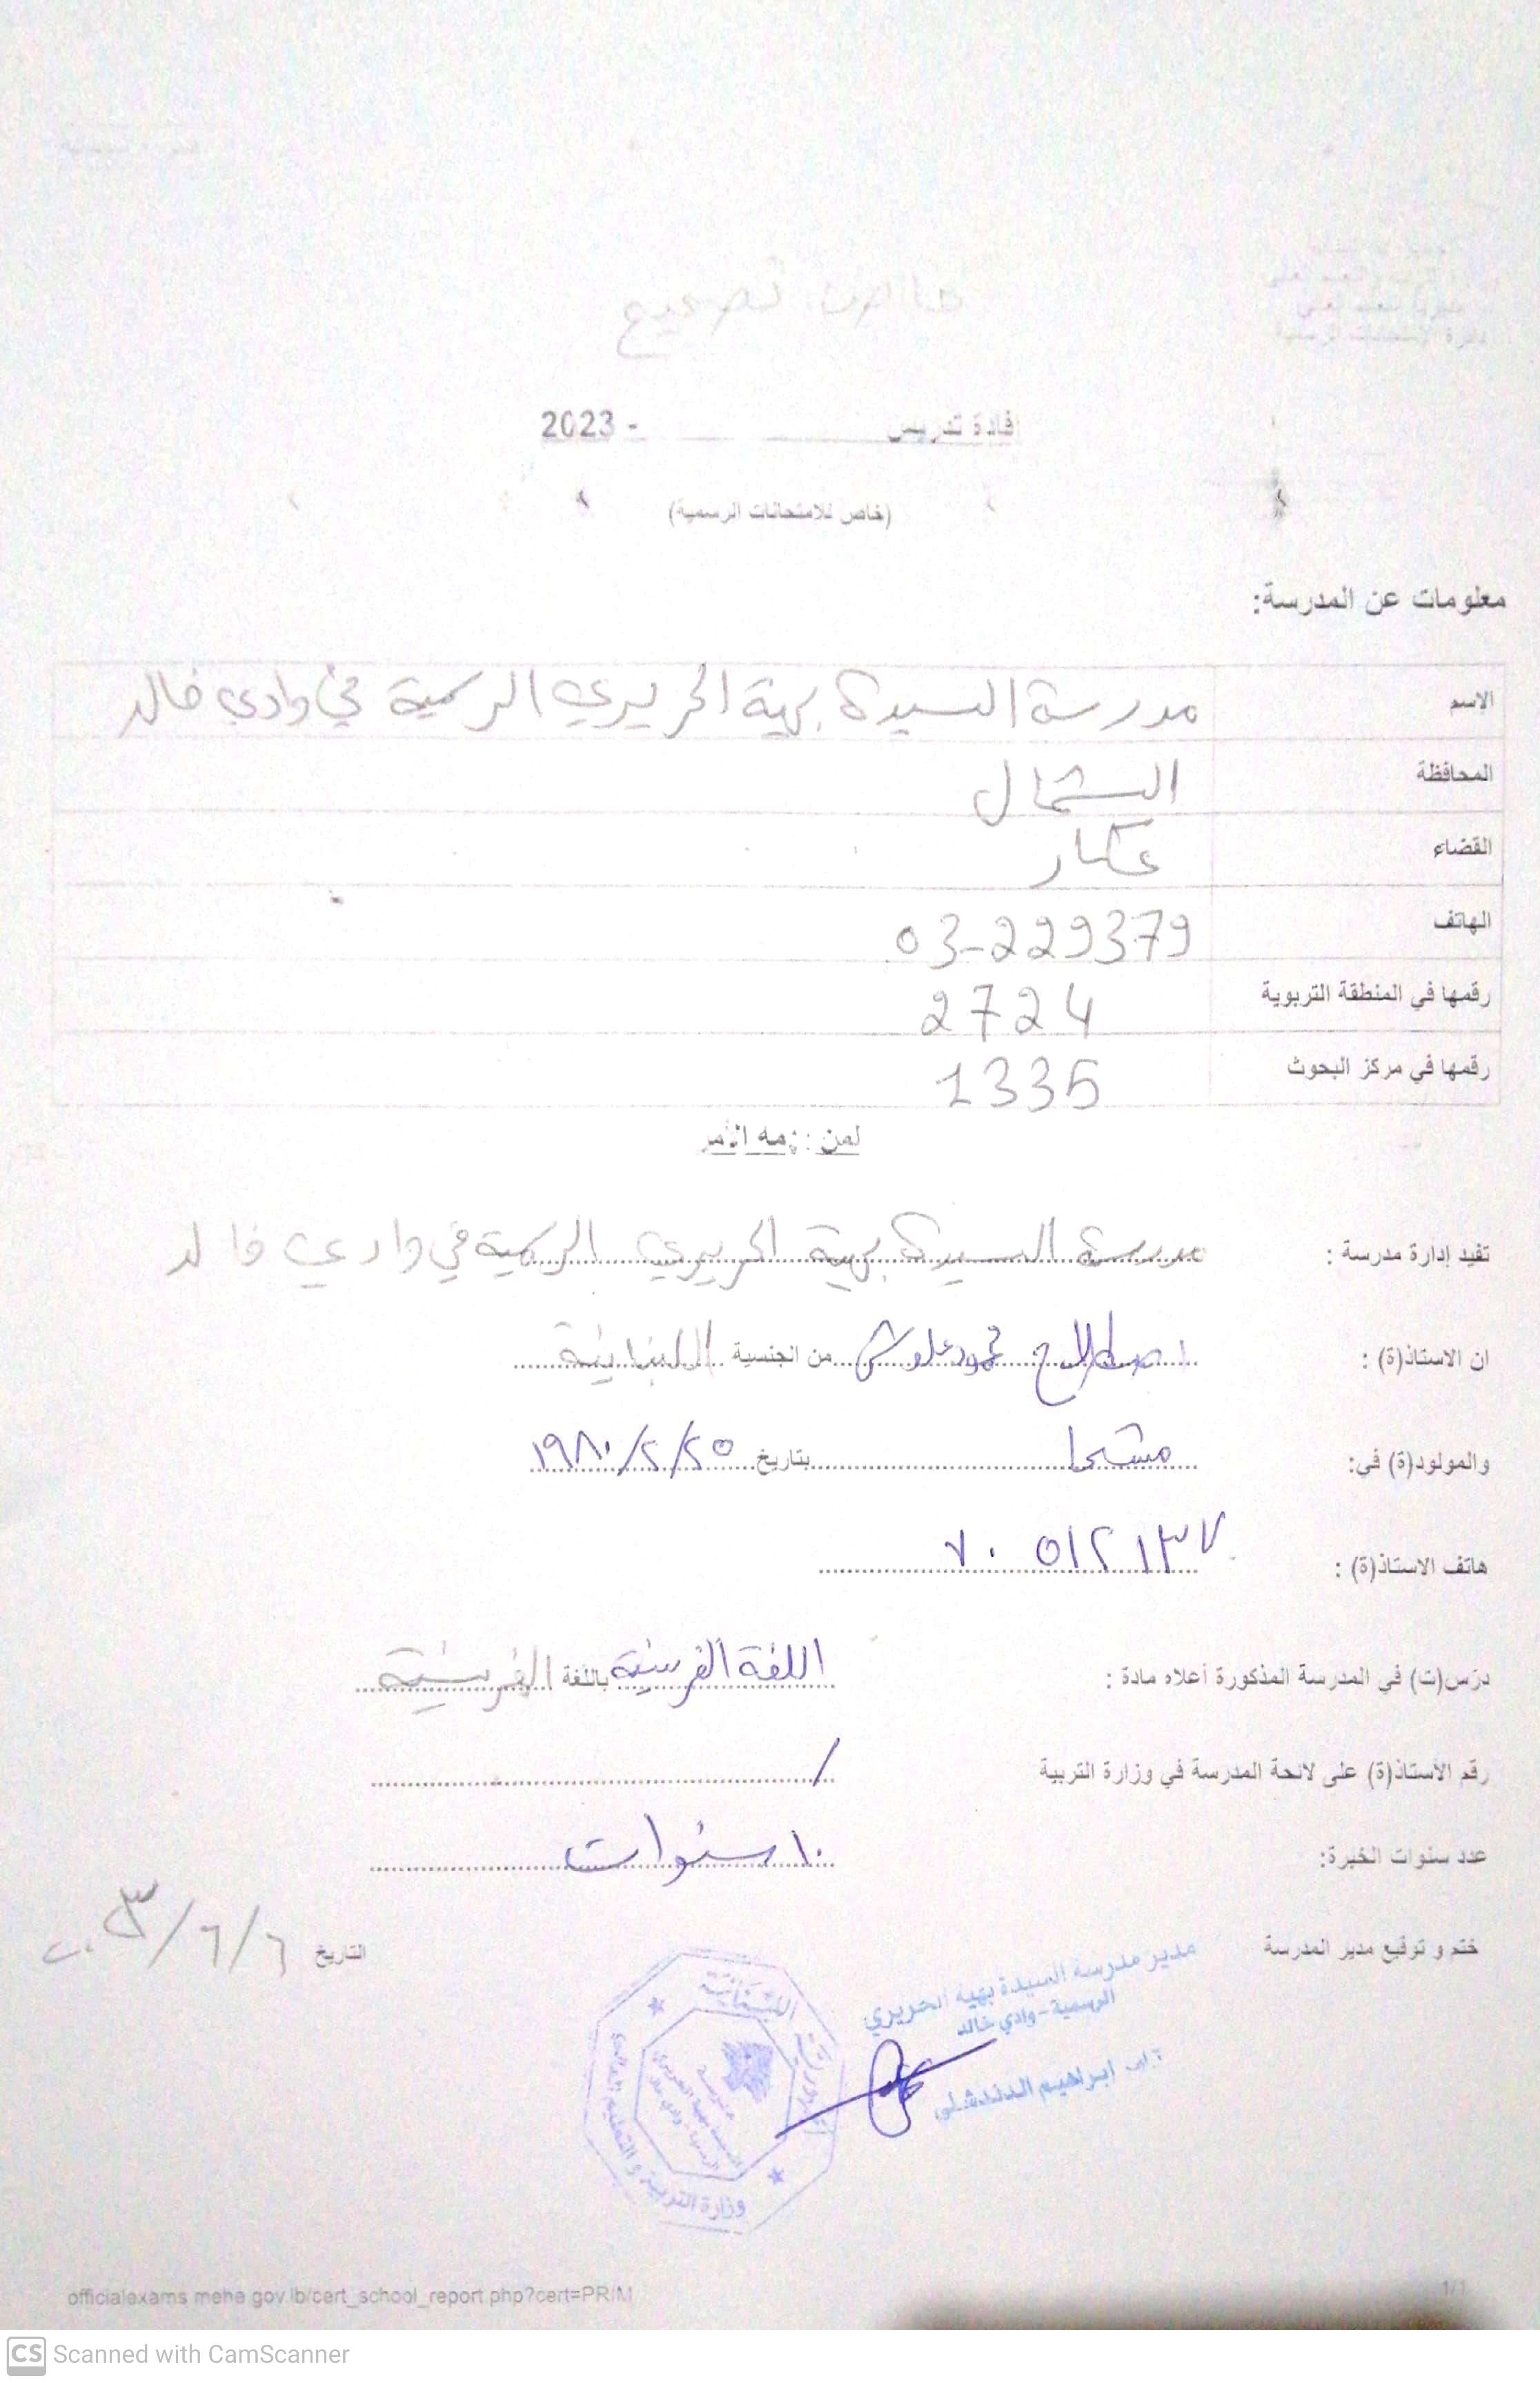 خاص تصحيح
إفادة تدريس - 2023
(خاص للامتحانات الرسمية)
معلومات عن المدرسة:
الاسم مدرسة السيدة بهية الحريري الرسمية في وادي خالد
المحافظة الشمال
القضاء عكار
الهاتف 03-229379
رقمها في المنطقة التربوية 2724
رقمها في مركز البحوث 1335
لمن يهمه الأمر
تفيد إدارة مدرسة : مدرسة السيدة بهية الحريري الرسمية في وادي خالد
ان الاستاذ(ة) : محمود علوش من الجنسية اللبنانية
والمولود(ة) في: مشحا بتاريخ ٢٥/٢/١٩٨٠
هاتف الاستاذ(ة) : ٧٠ ٥١٢١٣٧
درّس(ت) في المدرسة المذكورة أعلاه مادة : اللغة الفرنسية باللغة الفرنسية
رقم الأستاذ(ة) على لائحة المدرسة في وزارة التربية /
عدد سنوات الخبرة: ١٠ سنوات
ختم و توقيع مدير المدرسة التاريخ ٦/٦/٢٠٢٣
مدير مدرسة السيدة بهية الحريري
الرسمية - وادي خالد
ابراهيم الدندشلي
اللبنانية
وزارة التربية والتعليم العالي
officialexams.mehe.gov.lb/cert_school_report.php?cert=PRIM 1/1
CS Scanned with CamScanner